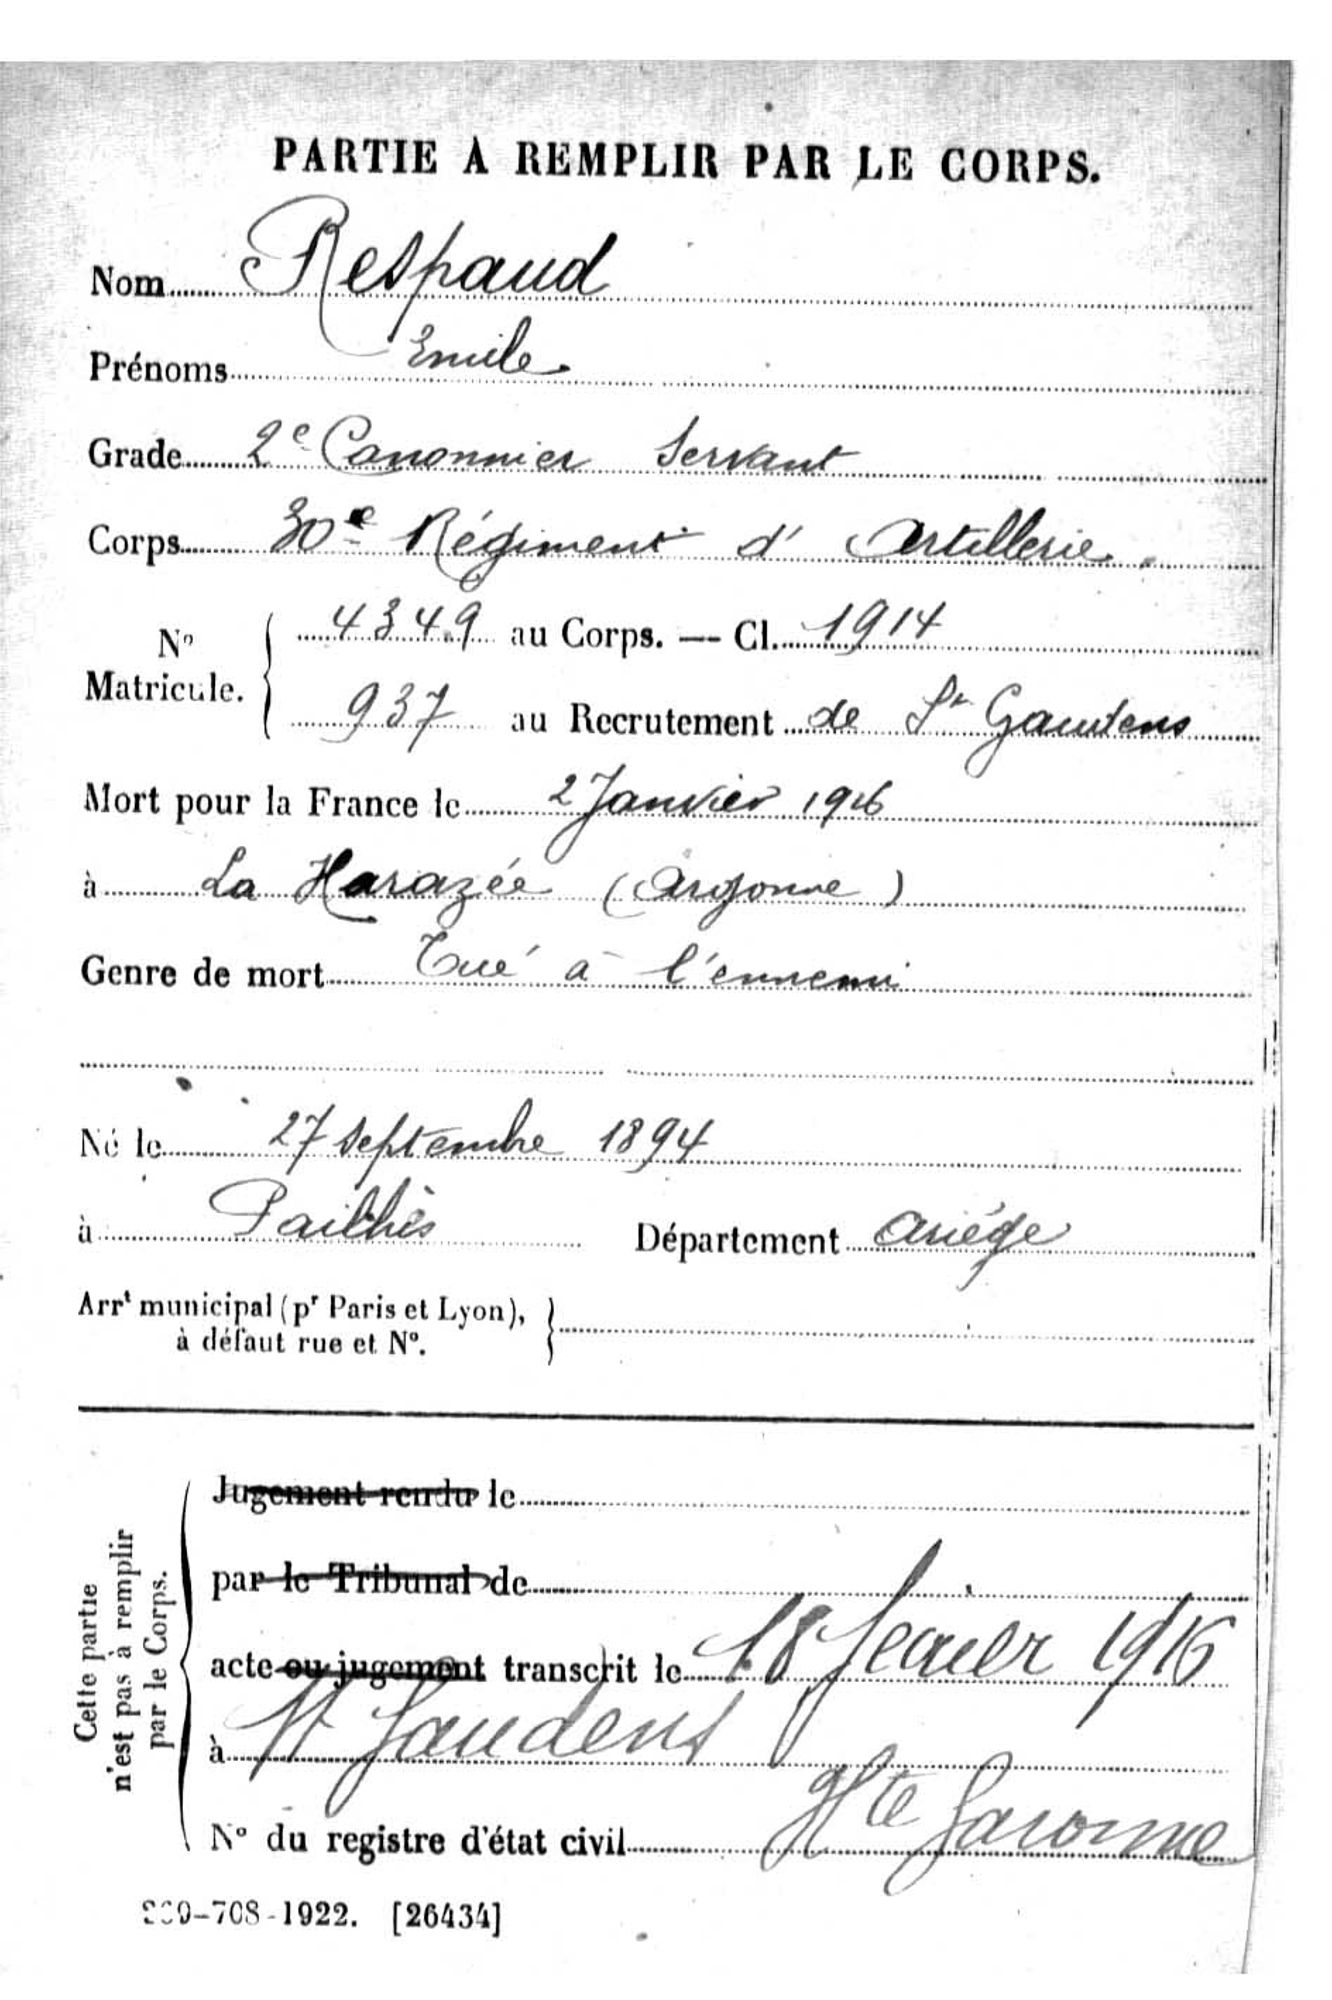 PARTIE À REMPLIR PAR LE CORPS.
Nom Respaud
Prénoms Emile
Grade 2e Canonnier Servant
Corps 30e Régiment d'Artillerie.
No Matricule. { 4349 au Corps. — Cl. 1914
937 au Recrutement de St Gaudens
Mort pour la France le 2 Janvier 1916
à La Harazée (Argonne)
Genre de mort Tué à l'ennemi
Né le 27 Septembre 1894
à Pailhès Département Ariége
Arrt municipal (pr Paris et Lyon),
à défaut rue et No.
Cette partie
n'est pas à remplir
par le Corps.
Jugement rendu le
par le Tribunal de
acte ou jugement transcrit le 18 février 1916
à St Gaudens
Hte Garonne
No du registre d'état civil
-708-1922. [26434]